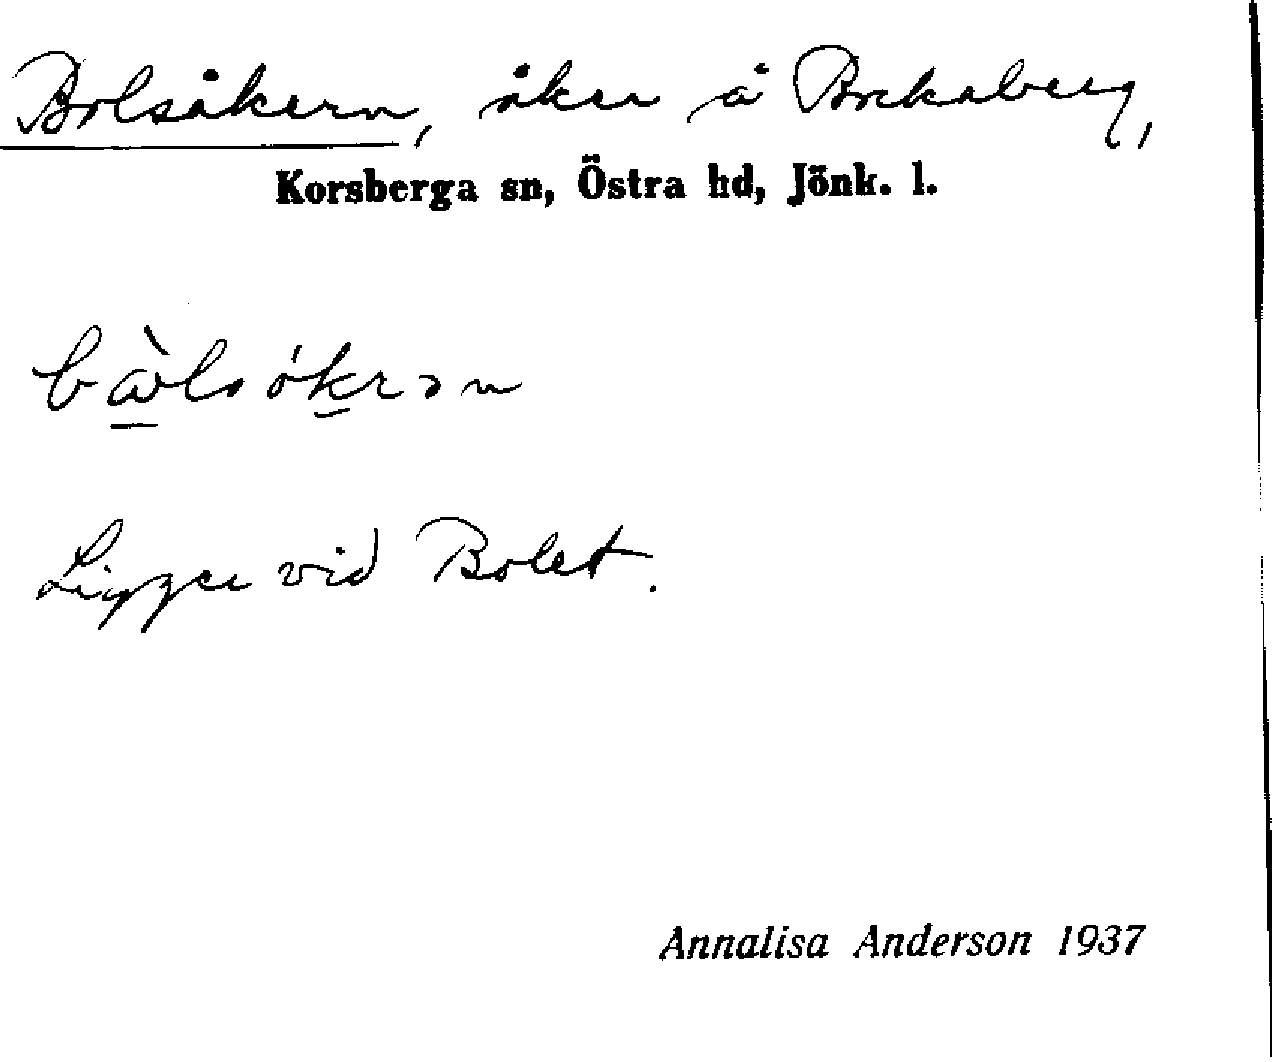 Bolsåkern, åker å Bockaberg,
Korsberga sn, Östra hd, Jönk. l.
Ligger vid Bolet.
Annalisa Anderson 1937